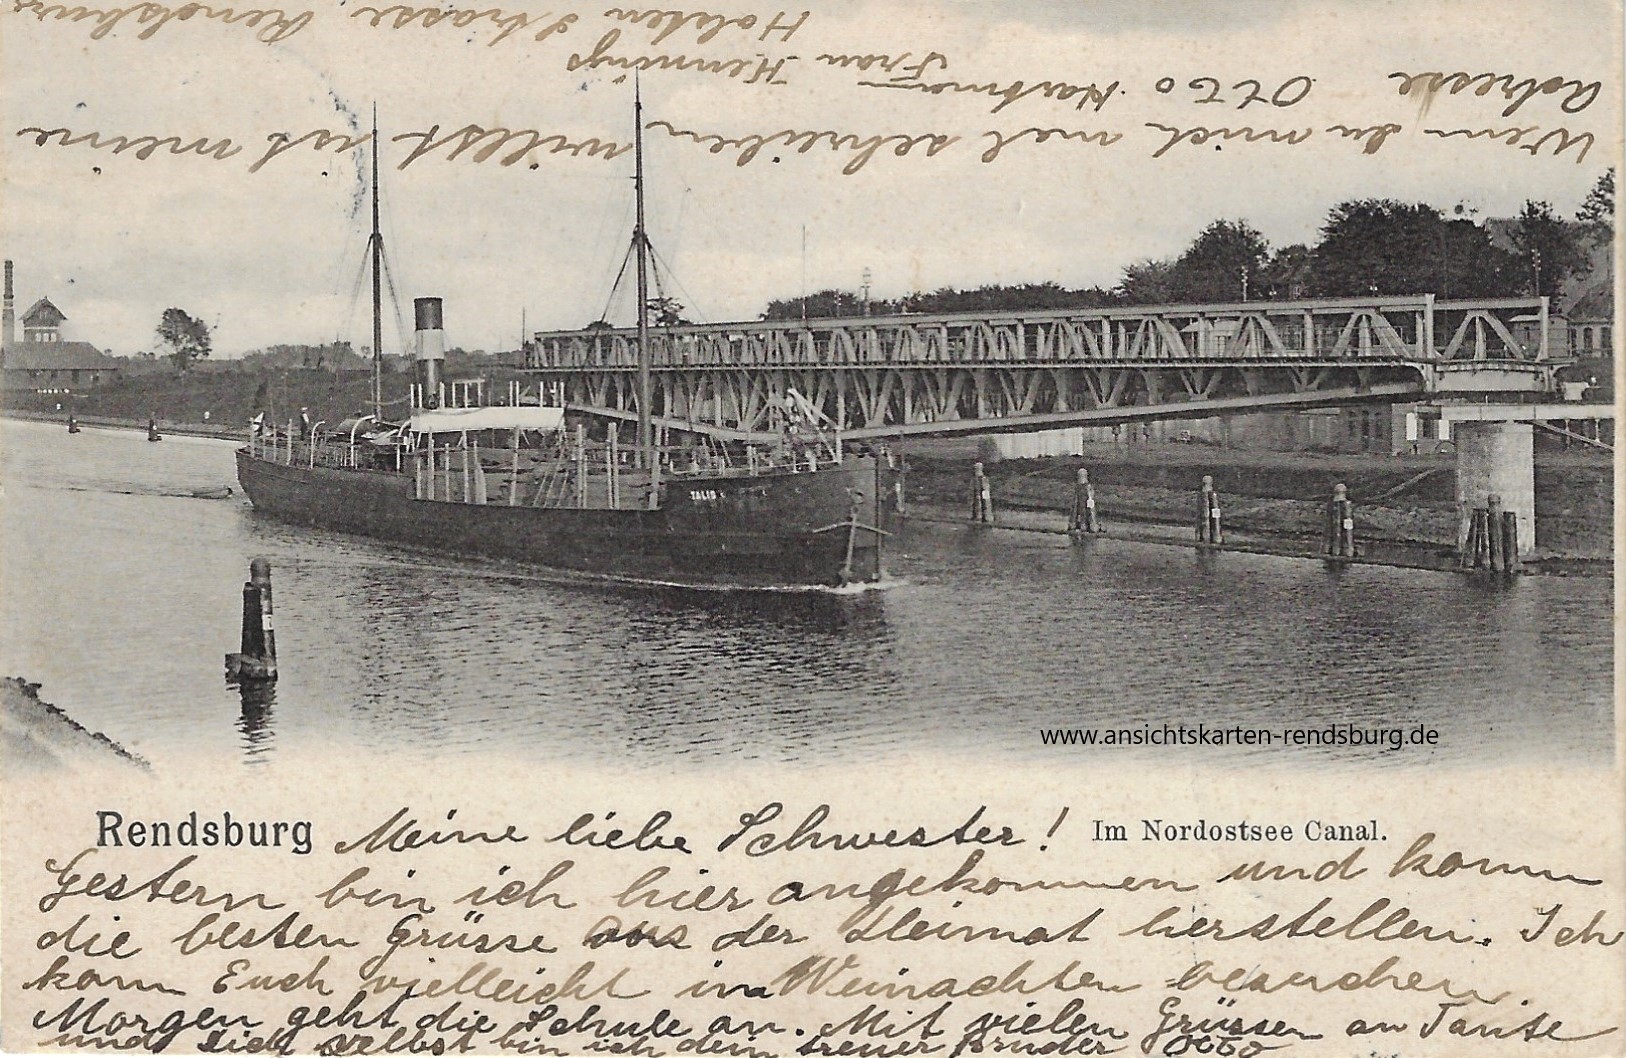 Wenn du mich mal schreiben willst ist meine
Adresse Otto Hartmann
Frau Hennings
Holsten Strasse, Rendsburg
TALIS
www.ansichtskarten-rendsburg.de
Rendsburg Meine liebe Schwester! Im Nordostsee Canal.
Gestern bin ich hier angekommen und komm
die besten Grüsse aus der Heimat herstellen. Ich
kom Euch vielleicht in Weinachten besuchen.
Morgen geht die Schule an. Mit vielen Grüssen an Tante
und dich selbst bin ich dein treuer Bruder Otto